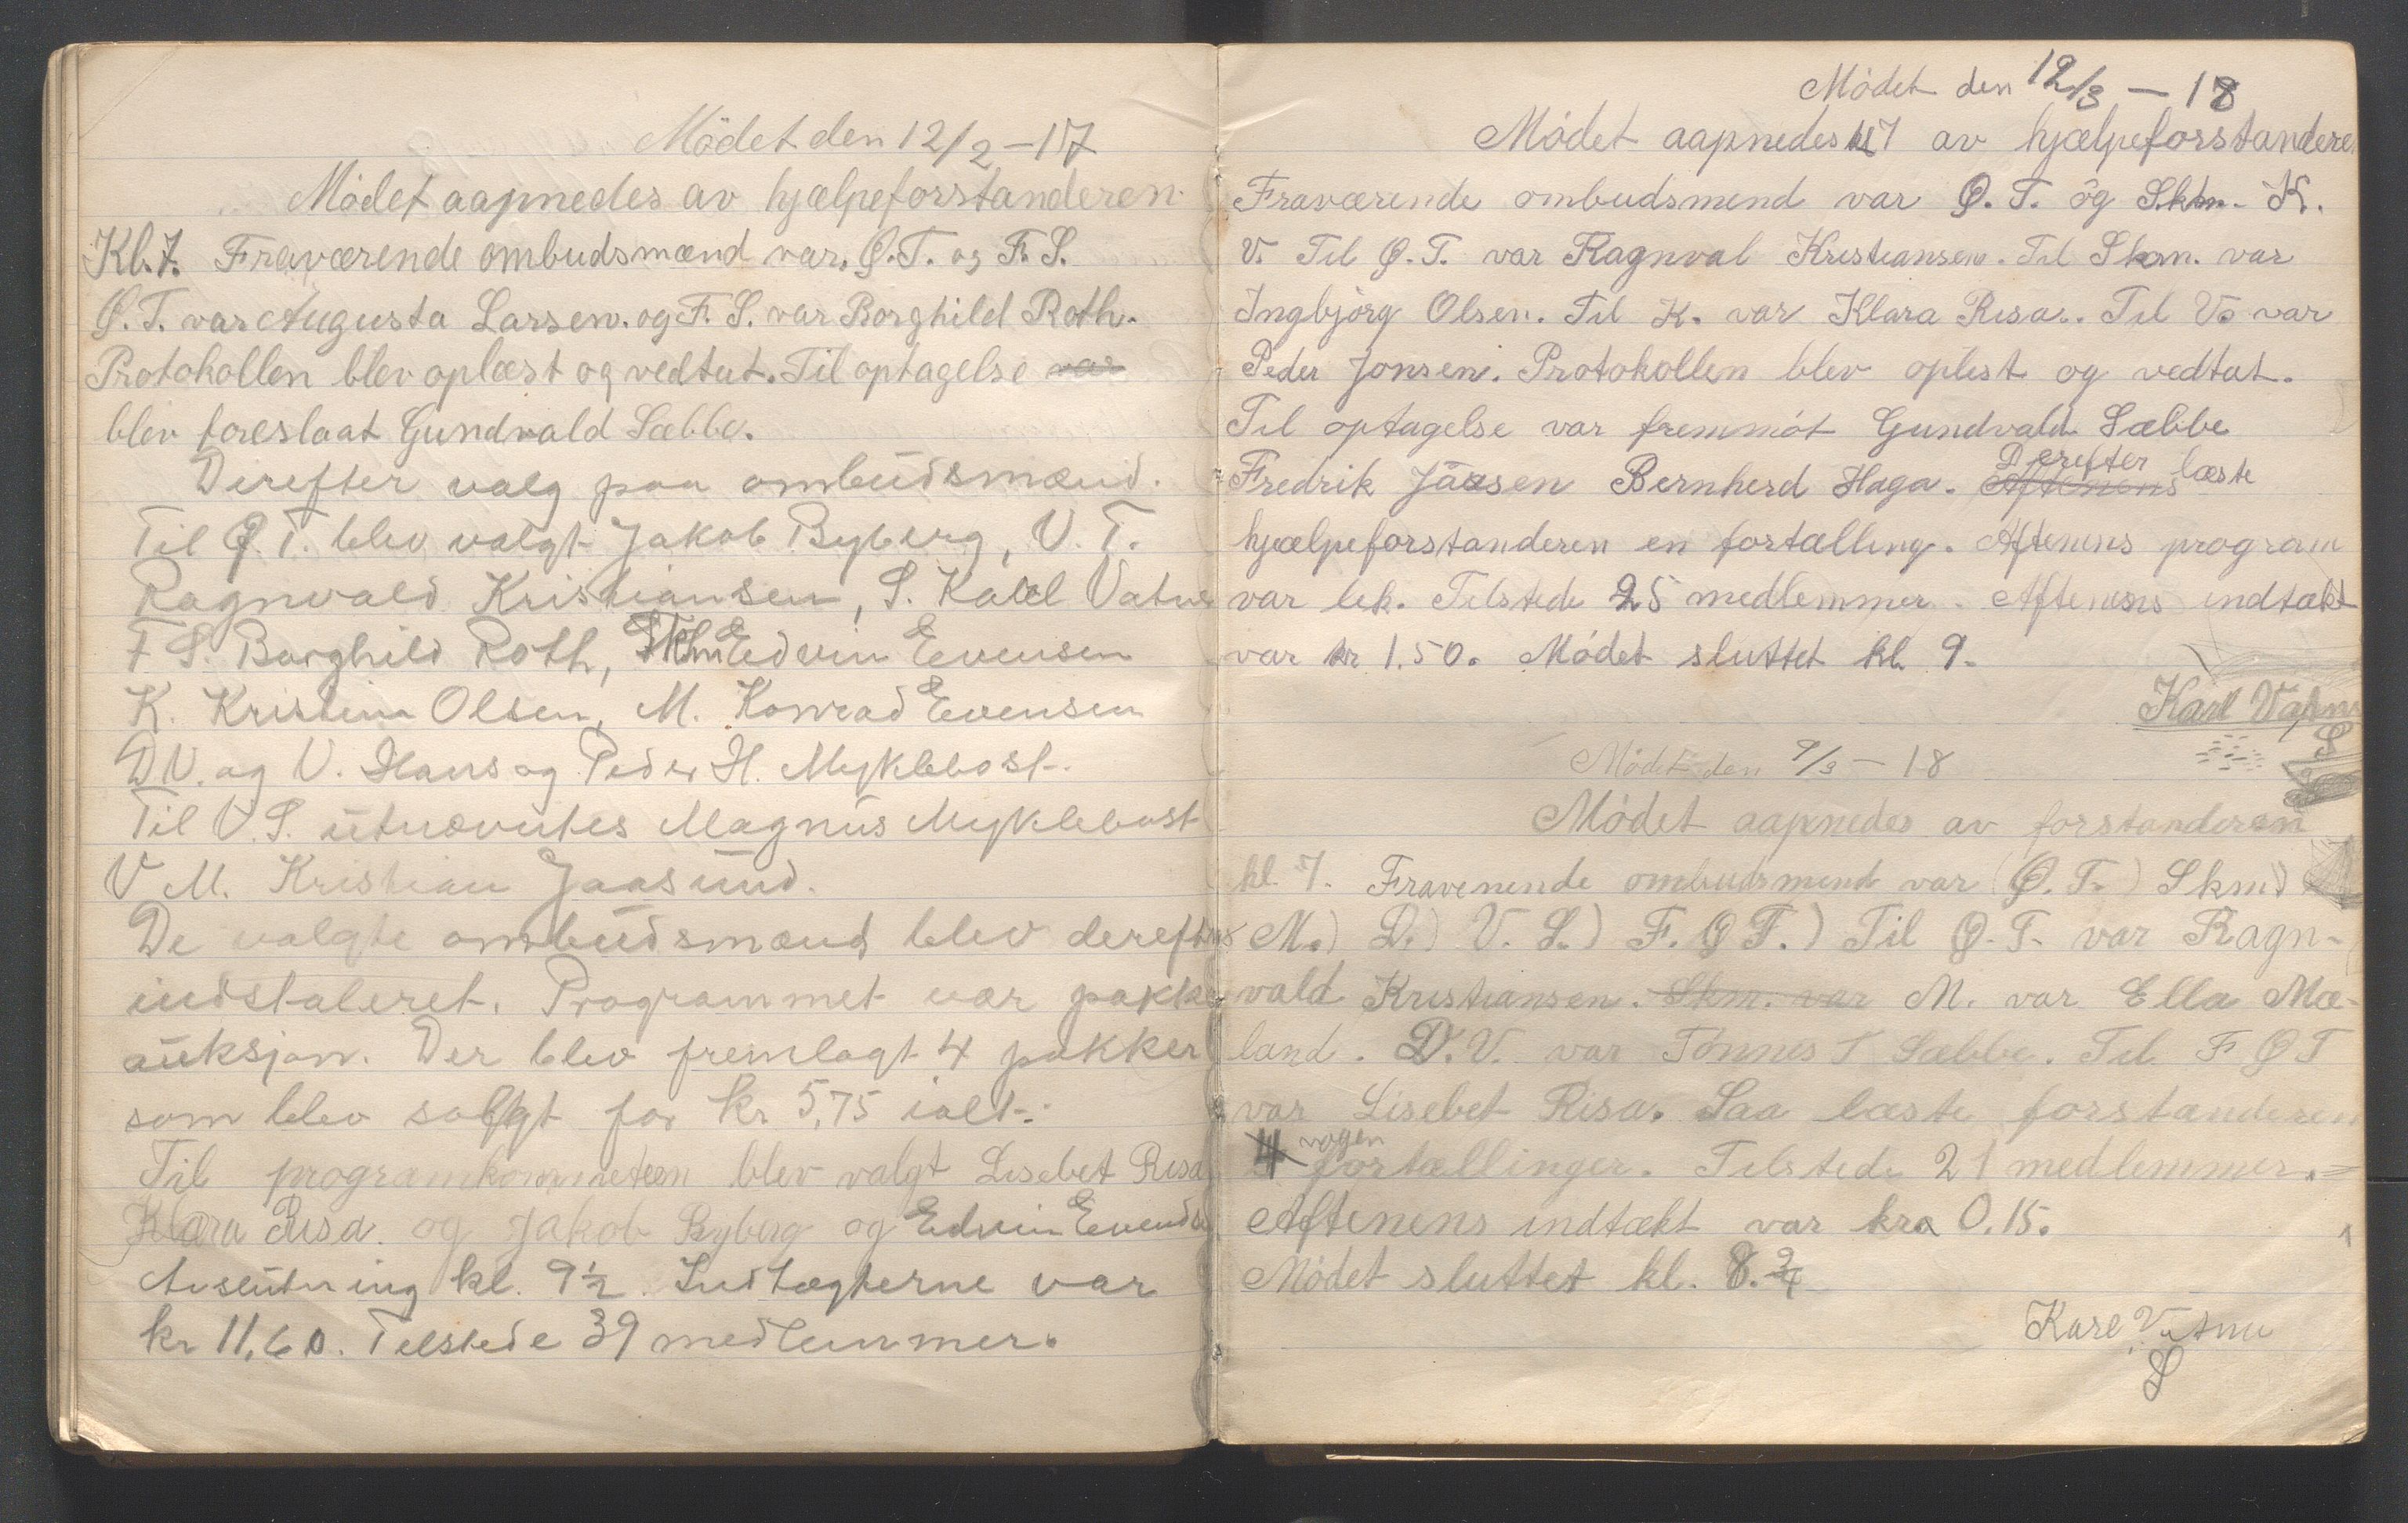 Mödet den 12/2 – 17
Mödet aapnedes av hjælpeforstanderen
Kl. 7. Fraværende ombudsmænd var. Ø.T. og F. S.
Ø. T. var Augusta Larsen. og F. S. var Borghild Roth.
Protokollen blev oplæst og vedtat. Til optagelse var
blev foreslaat Gundvald Sæbbe.
Derefter valg paa ombudsmænd.
Til Ø. T. blev valgt Jakob Byberg, V. T.
Ragnvald Kristiansen, S. Karl Vatne
F S. Borghild Roth, Skm Edvin Evensen
K. Kristine Olsen, M. Konrad Evensen
D V. og V. Hans og Peder H. Myklebost.
Til V. S. utnævntes Magnus Myklebust
V M. Kristian Jaasund.
De valgte ombudsmænd blev derefter
indstaleret. Programmet var pakke
auksjon. Der blev fremlagt 4 pakker
som blev solgt for kr 5,75 ialt.
Til programkommeteen blev valgt Lisebet Risa
Klara Risa. og Jakob Byberg og Edvin Evensen
Avslutning kl. 9½. Indtægterne var
kr 11,60. Telstede 39 medlemmer.
Módet den 12/3 – 18
Módet aapnedes kl 7 av hjælpeforstanderen
Fraværende ombudsmend var Ø. T. og Skm. K.
V. Til Ø. T. var Ragnval Kristiansen. Til Skm. var
Ingbjörg Olsen. Til K. var Klara Risa. Til V. var
Peder Jonsen. Protokollen blev oplest og vedtat.
Til optagelse var fremmót Gundvald Sæbbe
Fredrik Jaasen Bernherd Haga. Aftenens Derefter læste
hjælpeforstanderen en fortælling. Aftenens program
var lek. Telstede 25 medlemmer. Aftenens indtækt
var kr 1.50. Módet sluttet kl. 9.
Karl Vatne
S
Módet den 9/3 – 18
Módet aapnedes av forstanderen
kl. 7. Fravenende ombudsmend var (Ø. T.) Skm)
M.) D.) V. S.) F. Ø T.) Til Ø. T. var Ragn-
vald Kristiansen. Skm. var M. var Ella Mæ-
land. D.V. var Tönnes T Sæbbe. Til F Ø T
var Lisebet Risa. Saa læste forstanderen
4 nogen fortællinger. Telstede 21 medlemmer.
Aftenens indtækt var kra 0.15.
Módet sluttet kl. 8.¾
Karl Vatne
S